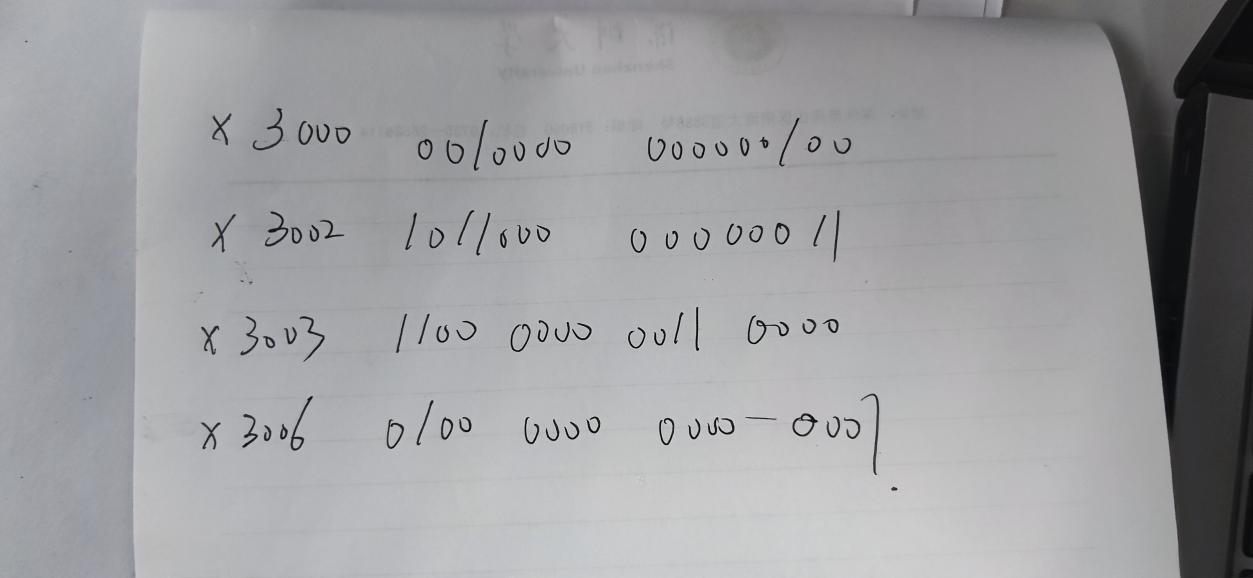 x 3000 0010000 000000100
x 3002 1011000 00000011
x 3003 1100 0000 0011 0000
x 3006 0100 0000 0000-0001.